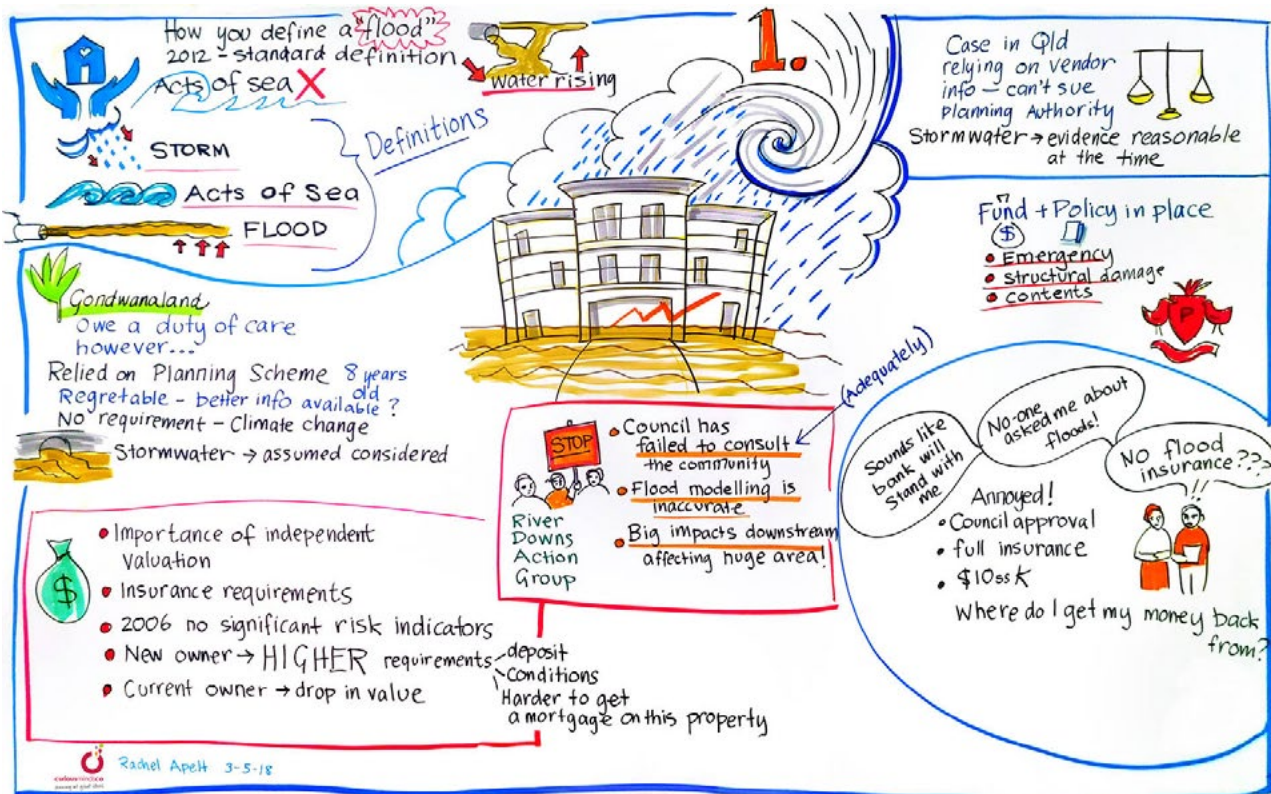 How you define a "flood"
2012 - standard definition
Acts of sea X
water rising
STORM
Acts of Sea
FLOOD
Definitions
1.
Case in Qld
relying on vendor
info - can't sue
planning Authority
Stormwater → evidence reasonable
at the time
Fund + Policy in place
$
• Emergency
• structural damage
• contents
P
Gondwanaland
Owe a duty of care
however...
Relied on Planning Scheme 8 years
old
Regretable - better info available?
No requirement - Climate change
Stormwater → assumed considered
(Adequately)
STOP
River
Downs
Action
Group
• Council has
failed to consult
the community
• Flood modelling is
inaccurate
• Big impacts downstream
affecting huge area!
Sounds like
bank will
Stand with
me
No-one
asked me about
floods!
No flood
insurance???
Annoyed!
• Council approval
• full insurance
• $10ssk
Where do I get my money back
from?
$
• Importance of independent
Valuation
• Insurance requirements
• 2006 no significant risk indicators
• New owner → HIGHER requirements
deposit
Conditions
Harder to get
a mortgage on this property
• Current owner → drop in value
Rachel Apelt 3-5-18